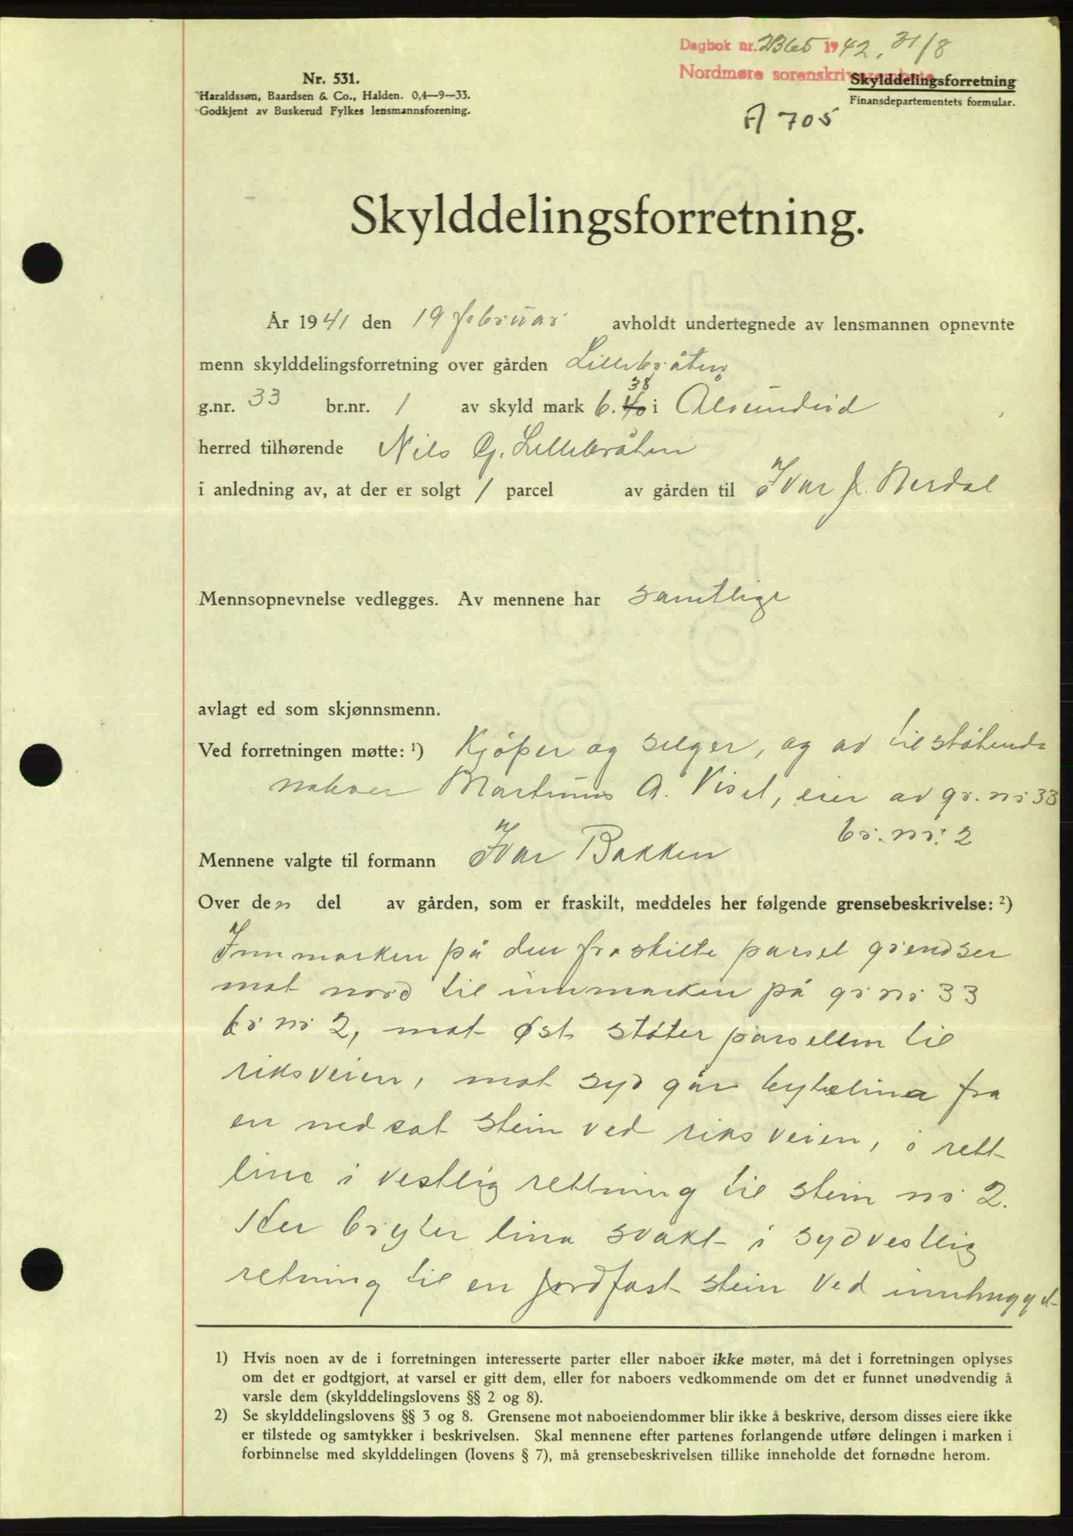 Dagbok nr. 2365 1942, 31/8
Nordmøre sorenskriverembete
Nr. 531.
Haraldssøn, Baardsen & Co., Halden. 0,4—9—33.
Godkjent av Buskerud Fylkes lensmannsforening.
Skylddelingsforretning
Finansdepartementets formular.
A 705
Skylddelingsforretning.
År 1941 den 19 februar avholdt undertegnede av lensmannen opnevnte
menn skylddelingsforretning over gården Lillebråten
38
g.nr. 33 br.nr. 1 av skyld mark 6.40 i Ålvundeid
herred tilhørende Nils G. Lillebråten
i anledning av, at der er solgt 1 parcel av gården til Ivar J. Nerdal
Mennsopnevnelse vedlegges. Av mennene har samtlige
avlagt ed som skjønnsmenn.
Ved forretningen møtte: ¹) Kjøper og selger, og av tilstøtende
naboer Martinus A. Viset, eier av gr. nr 33
br. nr. 2
Mennene valgte til formann Ivar Bakken
Over den del av gården, som er fraskilt, meddeles her følgende grensebeskrivelse: ²)
Innmarken på den fraskilte parsel grendser
mot nord til innmarken på gr nr 33
br nr 2, mot øst støter parsellen til
riksveien, mot syd går bytelina fra
en nedsat stein ved riksveien, i rett
line i vestlig rettning til stein nr 2.
Her bryter lina svakt i sydvestlig
retning til en jordfast stein ved innhugget
1) Hvis noen av de i forretningen interesserte parter eller naboer ikke møter, må det i forretningen oplyses
om det er godtgjort, at varsel er gitt dem, eller for naboers vedkommende om det er funnet unødvendig å
varsle dem (skylddelingslovens §§ 2 og 8).
2) Se skylddelingslovens §§ 3 og 8. Grensene mot naboeiendommer blir ikke å beskrive, dersom disses eiere ikke
er tilstede og samtykker i beskrivelsen. Skal mennene efter partenes forlangende utføre delingen i marken i
forbinnelse med skylddelingen (lovens § 7), må grensebeskrivelsen tillike inneholde det fornødne herom.